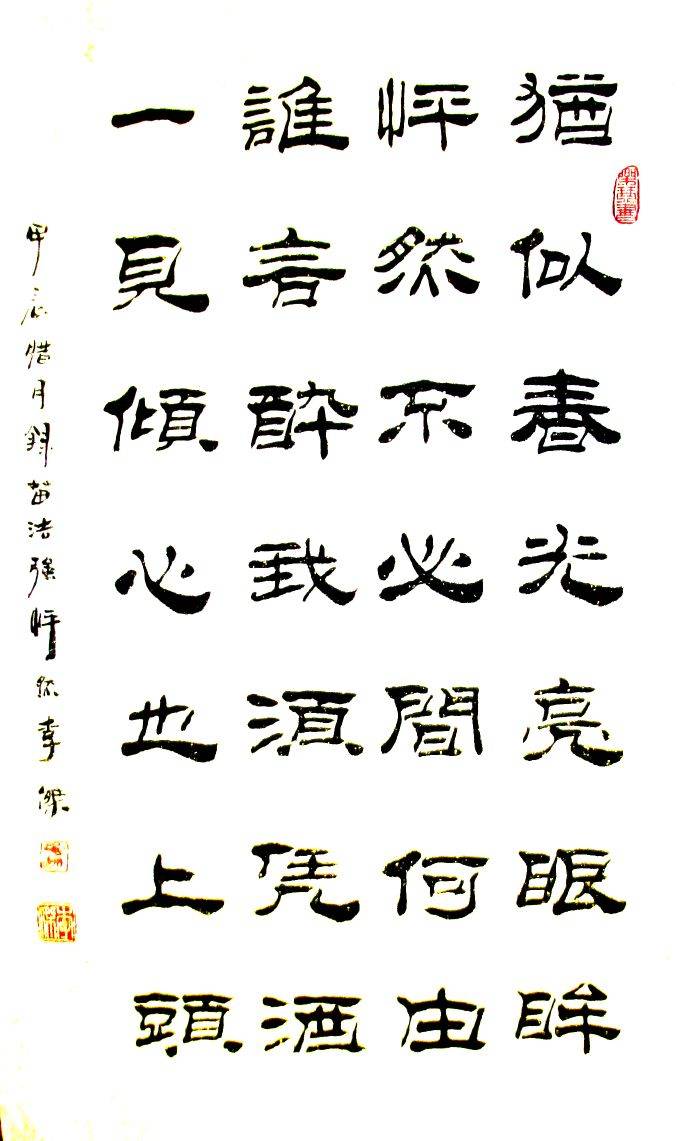 猶似春光亮眼眸
怦然不必間何由
誰言醉我湏凭酒
一見傾心也上頭
甲辰腊月錄苗法強怦然李傑